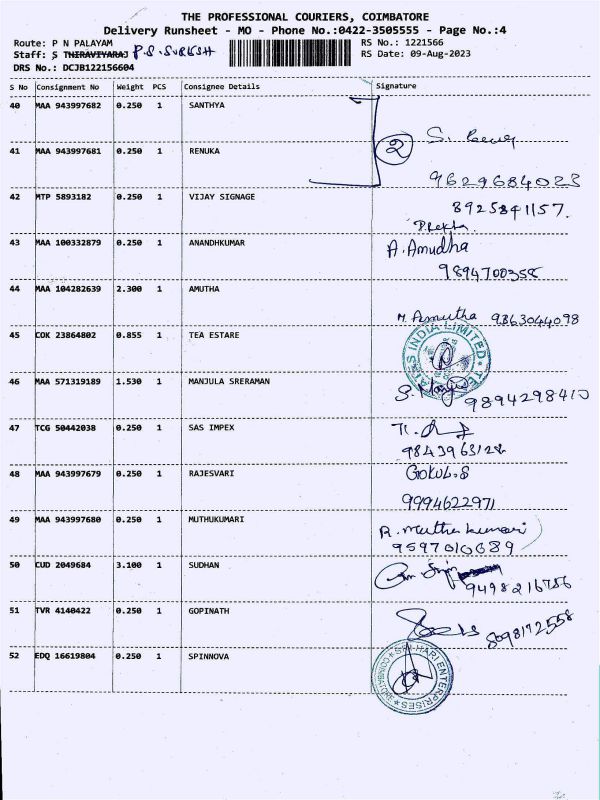 THE PROFESSIONAL COURIERS, COIMBATORE
Delivery Runsheet - MO - Phone No.:0422-3505555 - Page No.:4
Route: P N PALAYAM
RS No.: 1221566
Staff: S THIRAVIYARAJ P.S. SURESH
RS Date: 09-Aug-2023
DRS No.: DCJB122156604
S No Consignment No Weight PCS Consignee Details Signature
40 MAA 943997682 0.250 1 SANTHYA
41 MAA 943997681 0.250 1 RENUKA
2 S.
9629684023
42 MTP 5893182 0.250 1 VIJAY SIGNAGE
8925841157.
P.Rekha.
43 MAA 100332879 0.250 1 ANANDHKUMAR
A. Amudha
9894700358
44 MAA 104282639 2.300 1 AMUTHA
M. Asmutha 9363044098
45 COK 23864802 0.855 1 TEA ESTARE
INDIA LIMITED
46 MAA 571319189 1.530 1 MANJULA SRERAMAN
9894298410
47 TCG 50442038 0.250 1 SAS IMPEX
9843963128
48 MAA 943997679 0.250 1 RAJESVARI
Gokul.S
9994622971
49 MAA 943997680 0.250 1 MUTHUKUMARI
R. Muthu kumari
9597010689
50 CUD 2049684 3.100 1 SUDHAN
9498216786
51 TVR 4140422 0.250 1 GOPINATH
8098172558
52 EDQ 16619804 0.250 1 SPINNOVA
SRI HARI ENTERPRISES
COIMBATORE